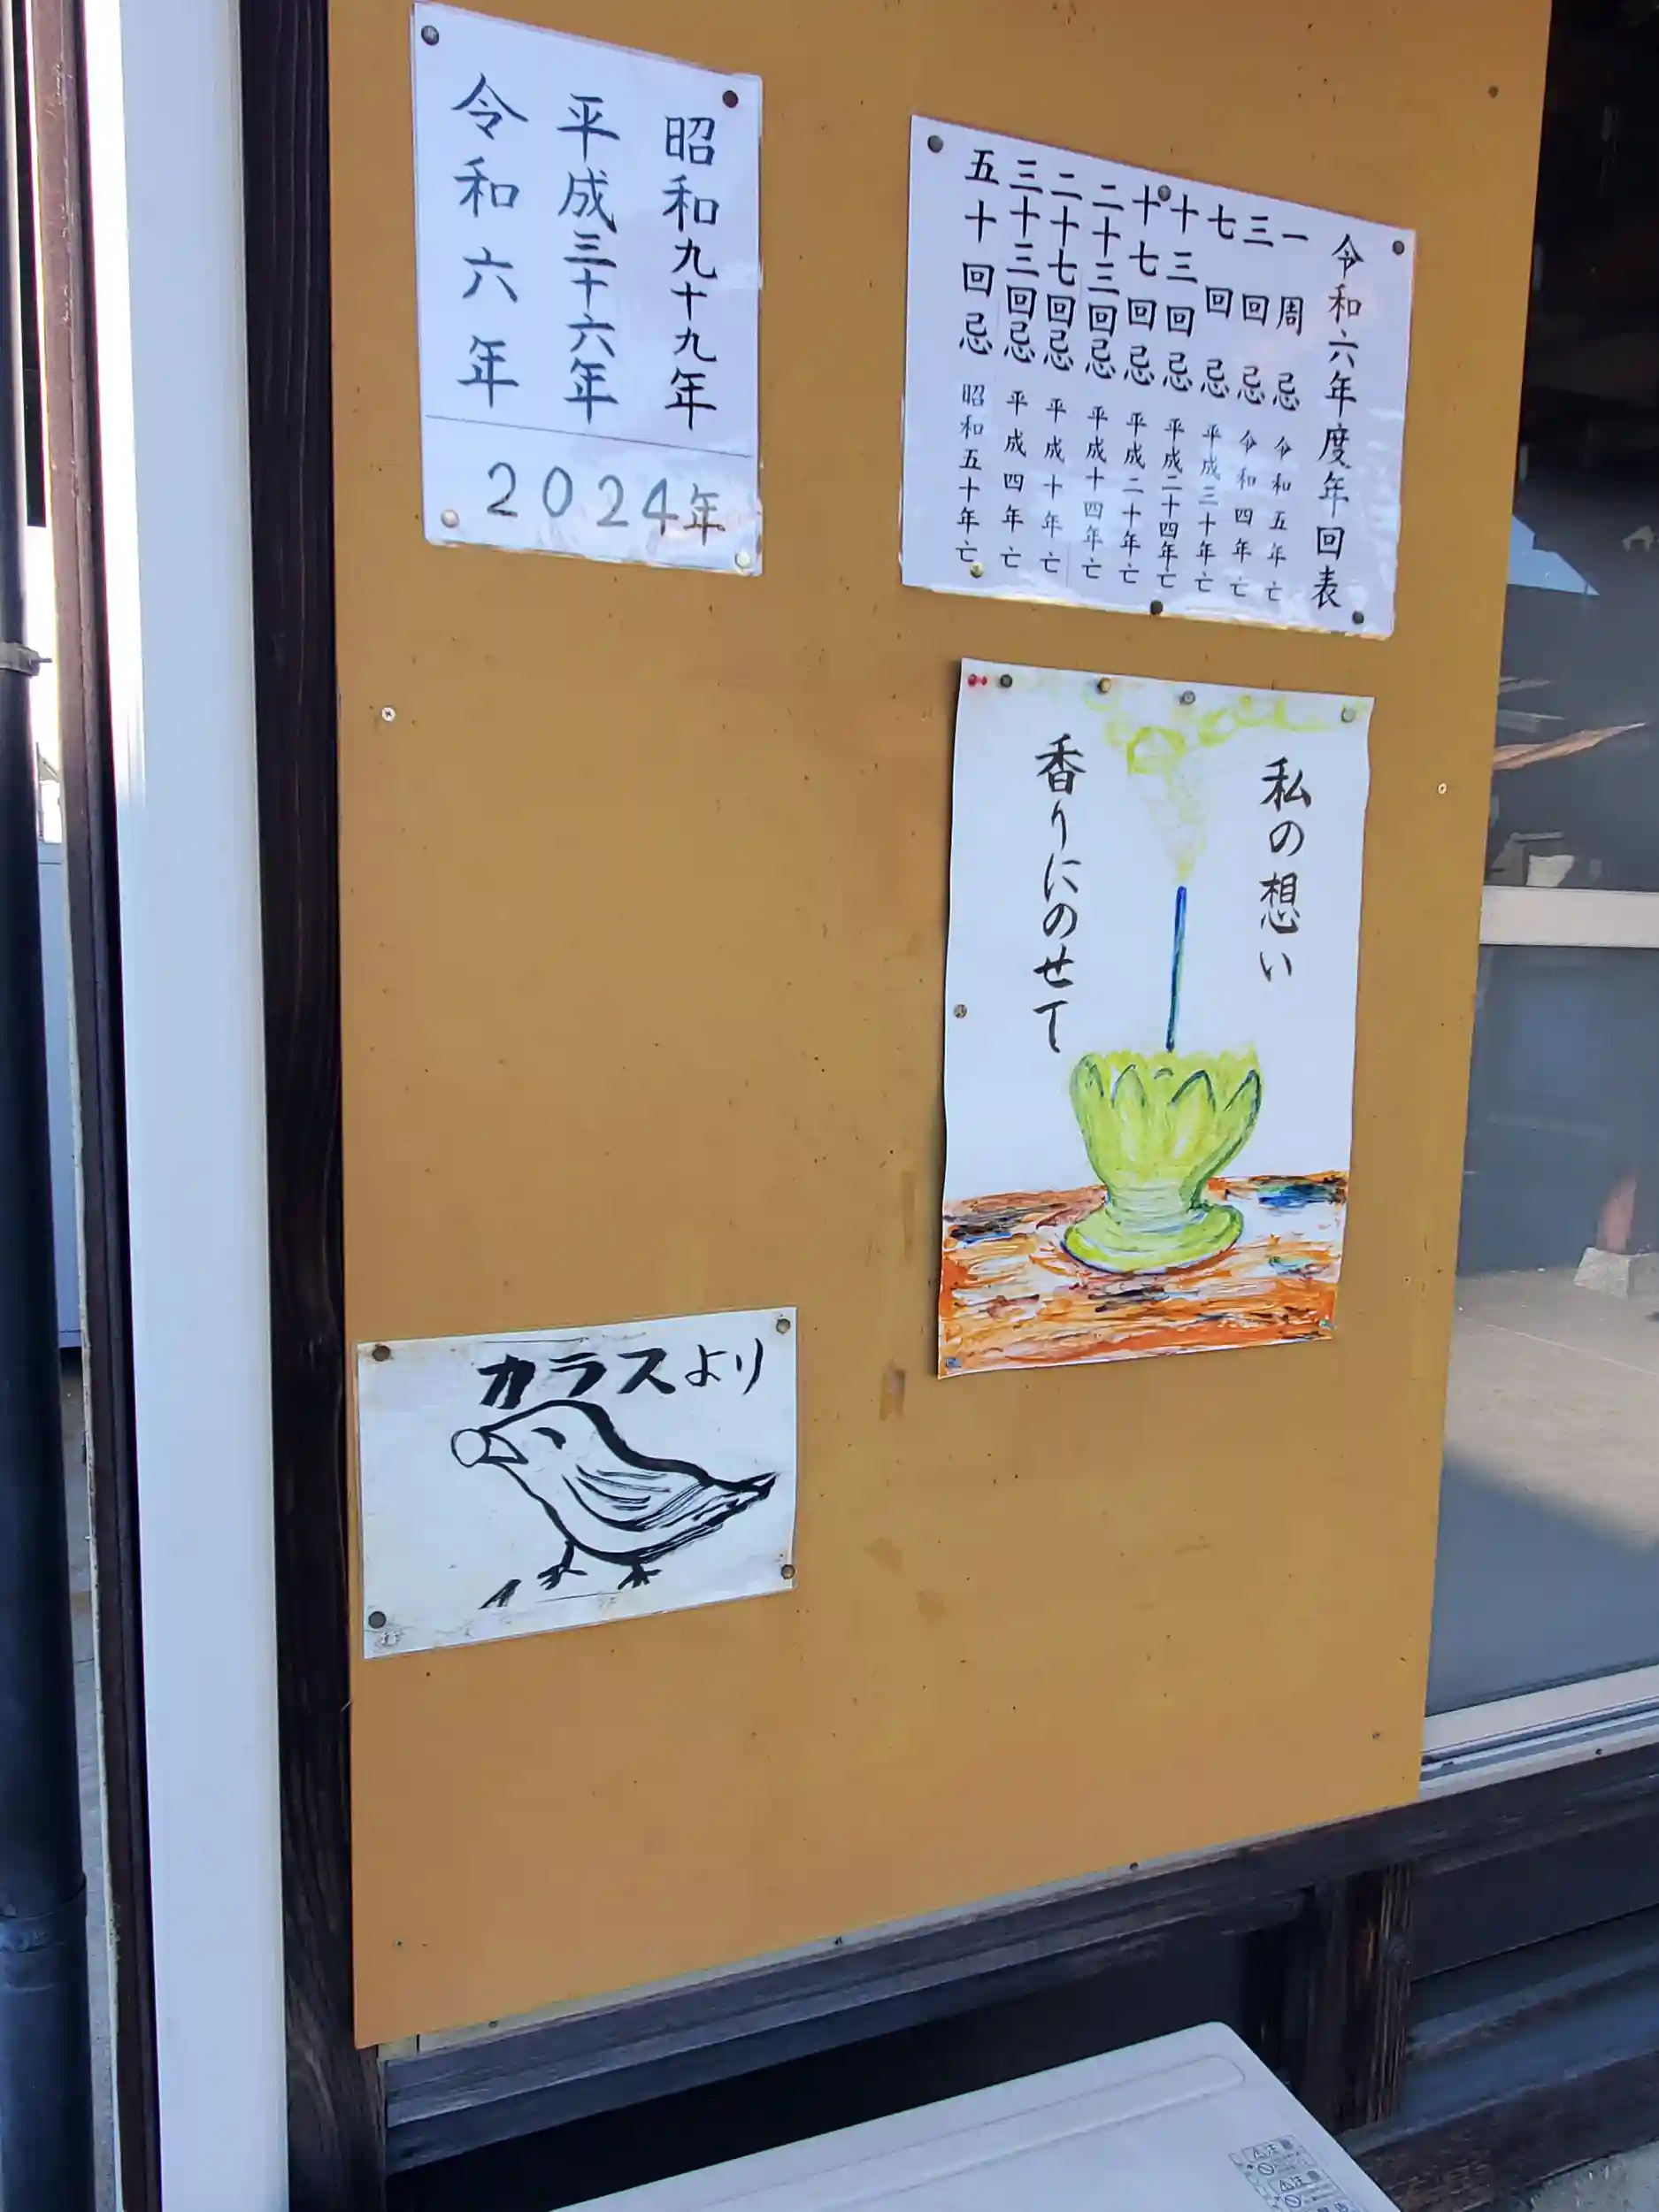 昭和九十九年
平成三十六年
令和六年
2024年
令和六年度年回表
一周忌 令和五年亡
三回忌 令和四年亡
七回忌 平成三十年亡
十三回忌 平成二十四年亡
十七回忌 平成二十年亡
二十三回忌 平成十四年亡
二十七回忌 平成十年亡
三十三回忌 平成四年亡
五十回忌 昭和五十年亡
私の想い
香りにのせて
カラスより
注意
注意